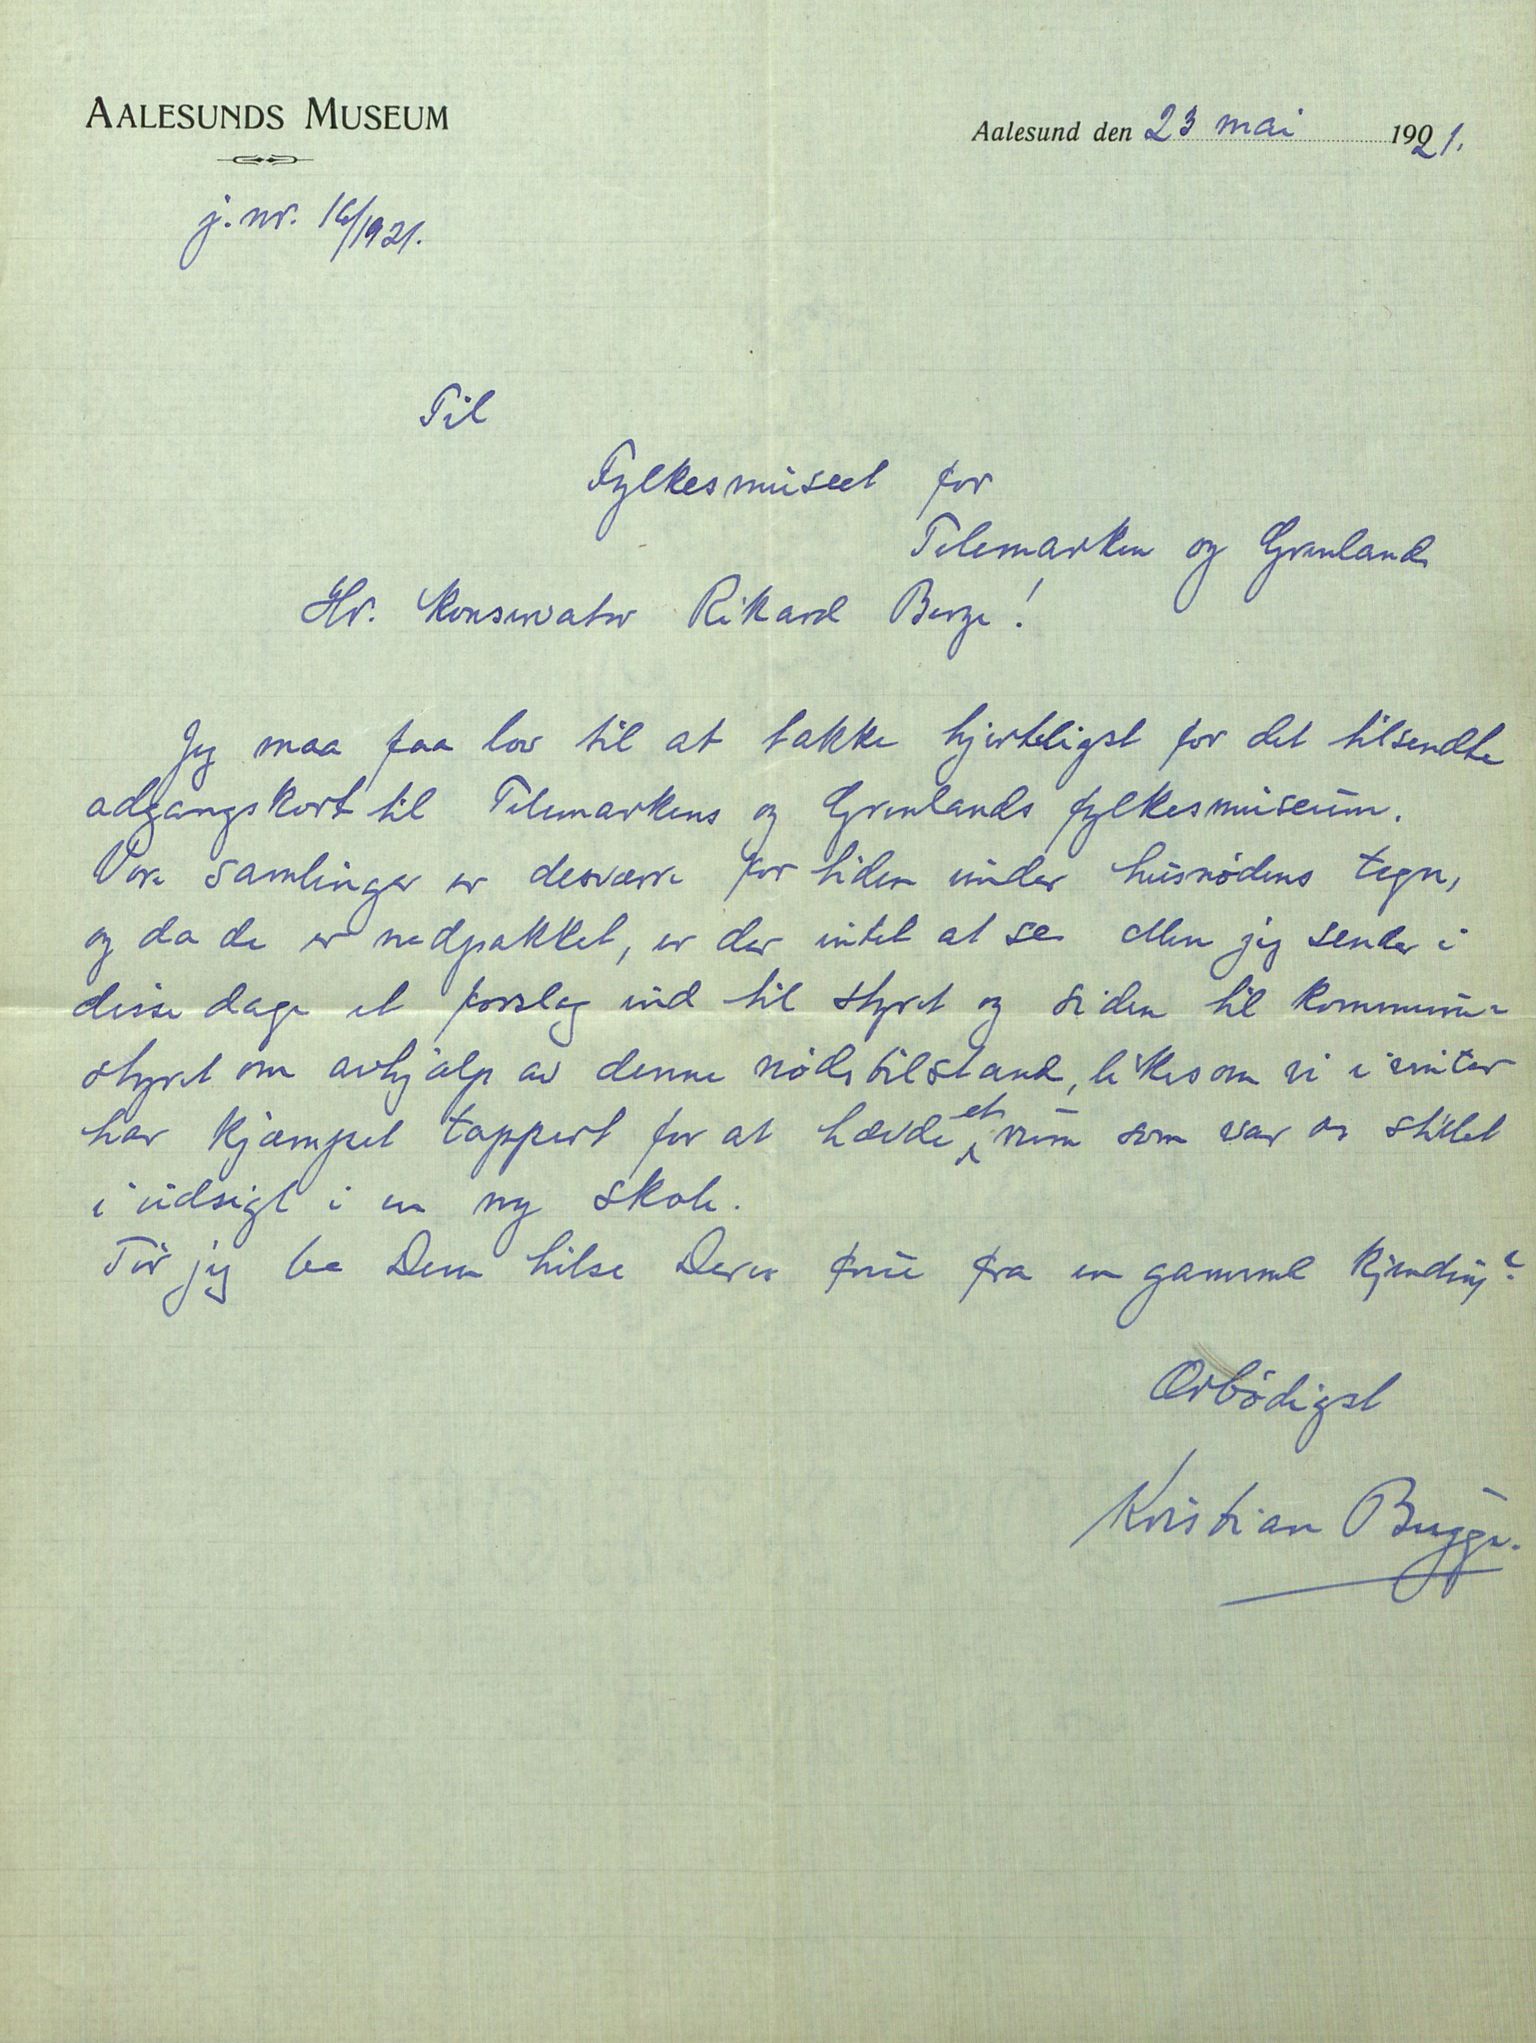 AALESUNDS MUSEUM
Aalesund den 23 mai 1921.
j. nr. 16/1921.
Til
Fylkesmuseet for
Telemarken og Grenland
Hr. Konservator Rikard Berge!
Jeg maa faa lov til at takke hjerteligst for det tilsendte
adgangskort til Telemarkens og Grenlands fylkesmuseum.
Vore samlinger er desværre for tiden under husnødens tegn,
og da de er nedpakket, er der intet at se. Men jeg sender i
disse dage et forslag ind til styret og siden til kommune-
styret om avhjælp av denne nødstilstand, likesom vi i vinter
har kjæmpet tappert for at hævde et rum som var os stillet
i udsigt i en ny skole.
Tör jeg be Dem hilse Deres frue fra en gammel kjending?
Ærbödigst
Kristian Bugge.